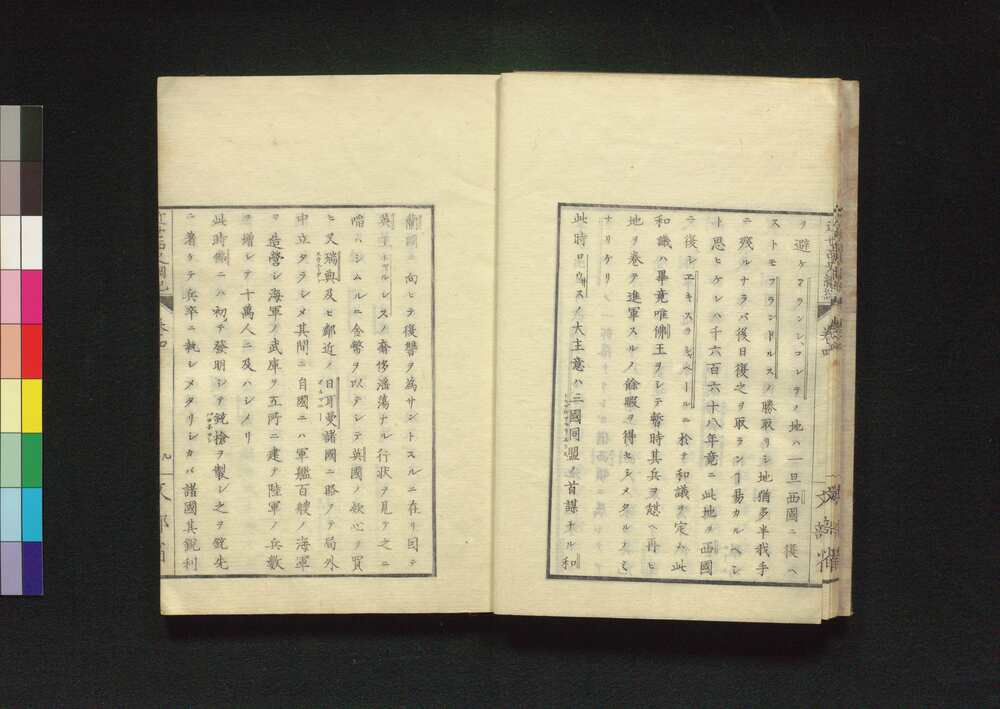 ヲ避ケフランシ、コンテノ地ハ一旦西國ニ復ヘ
ストモフランドルスノ勝取リシ地猶多半我手
ニ殘ルナラバ後日復之ヲ取ランヿ易カルベシ
ト思ヒケレハ千六百六十八年竟ニ此地ヲ西國
ニ復シエキスラシャペールニ於テ和議ヲ定ム此
和議ハ畢竟唯佛王ヲシテ暫時其兵ヲ憇ヘ再ヒ
地ヲ卷テ進軍スルノ餘暇ヲ得セシメタルノミ
ナリケリ
此時呂ウスノ大主意ハ三國同盟ノ首謀ナル和
蘭國ニ向ヒテ復讐ヲ爲サントスルニ在リ因テ
英王チャルレスノ奢侈滛蕩ナル行狀ヲ見テ之ニ
啗ハシムルニ金幣ヲ以テシテ英國ノ歓心ヲ買
ヒ又瑞典及ヒ鄰近ノ日耳曼諸國ニ賂フテ局外
中立タラシメ其間ニ自國ニハ軍艦百艘ノ海軍
ヲ造營シ海軍ノ武庫ヲ五所ニ建テ陸軍ノ兵數
ヲ増シテ十萬人ニ及ハシメリ
此時佛ニハ初テ發明シテ銃槍ヲ製シ之ヲ銃先
ニ著ケテ兵卒ニ執シメタリシカバ諸國其銳利
卷四
九
文部省